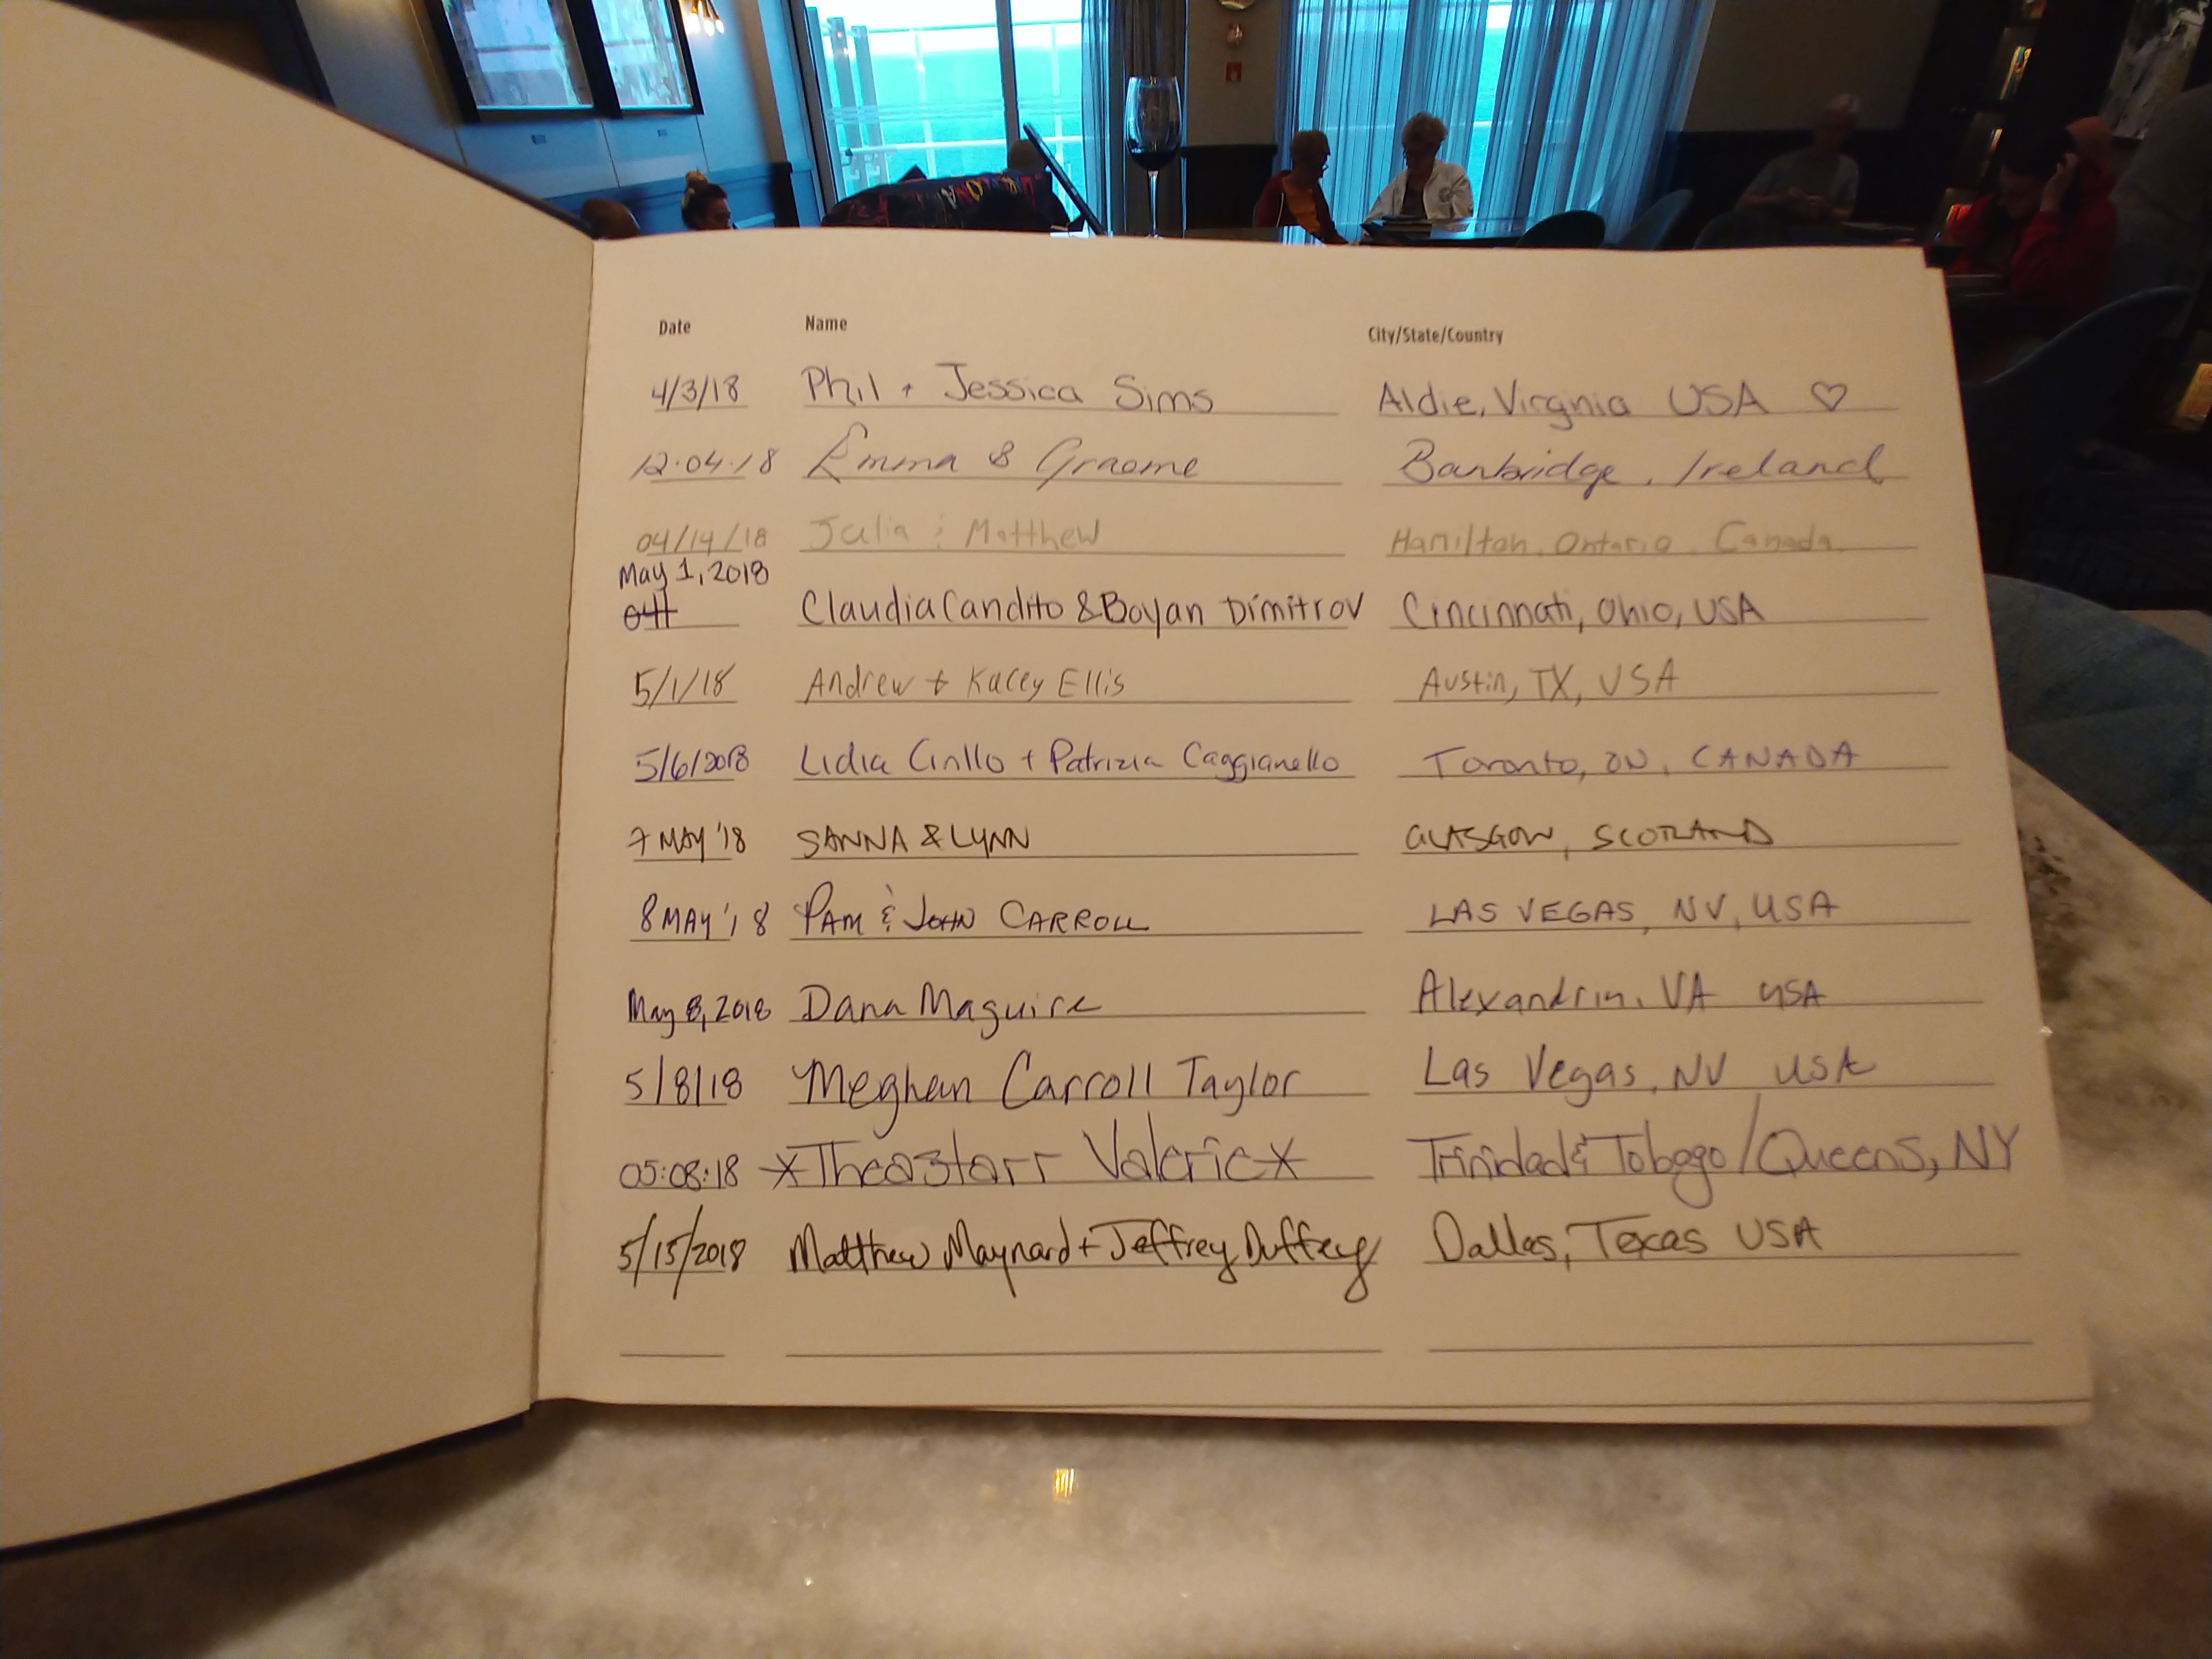 Date Name City/State/Country
4/3/18 Phil + Jessica Sims Aldie, Virgnia USA ♡
12.04.18 Emma & Graeme Banbridge, Ireland
04/14/18 Julia & Matthew Hamilton, Ontario, Canada
May 1, 2018
04/1 Claudia Candito & Boyan Dimitrov Cincinnati, Ohio, USA
5/1/18 Andrew + Kacey Ellis Austin, TX, USA
5/6/2018 Lidia Cirillo + Patrizia Caggianello Toronto, ON, CANADA
7 MAY '18 SANNA & LYNN GLASGOW, SCOTLAND
8 MAY '18 PAM & JOHN CARROLL LAS VEGAS, NV, USA
May 8, 2018 Dana Maguire Alexandria, VA USA
5/8/18 Meghan Carroll Taylor Las Vegas, NV USA
05:08:18 *Theastarr Valerie* Trinidad & Tobago/Queens, NY
5/15/2018 Matthew Maynard + Jeffrey Duffey Dallas, Texas USA